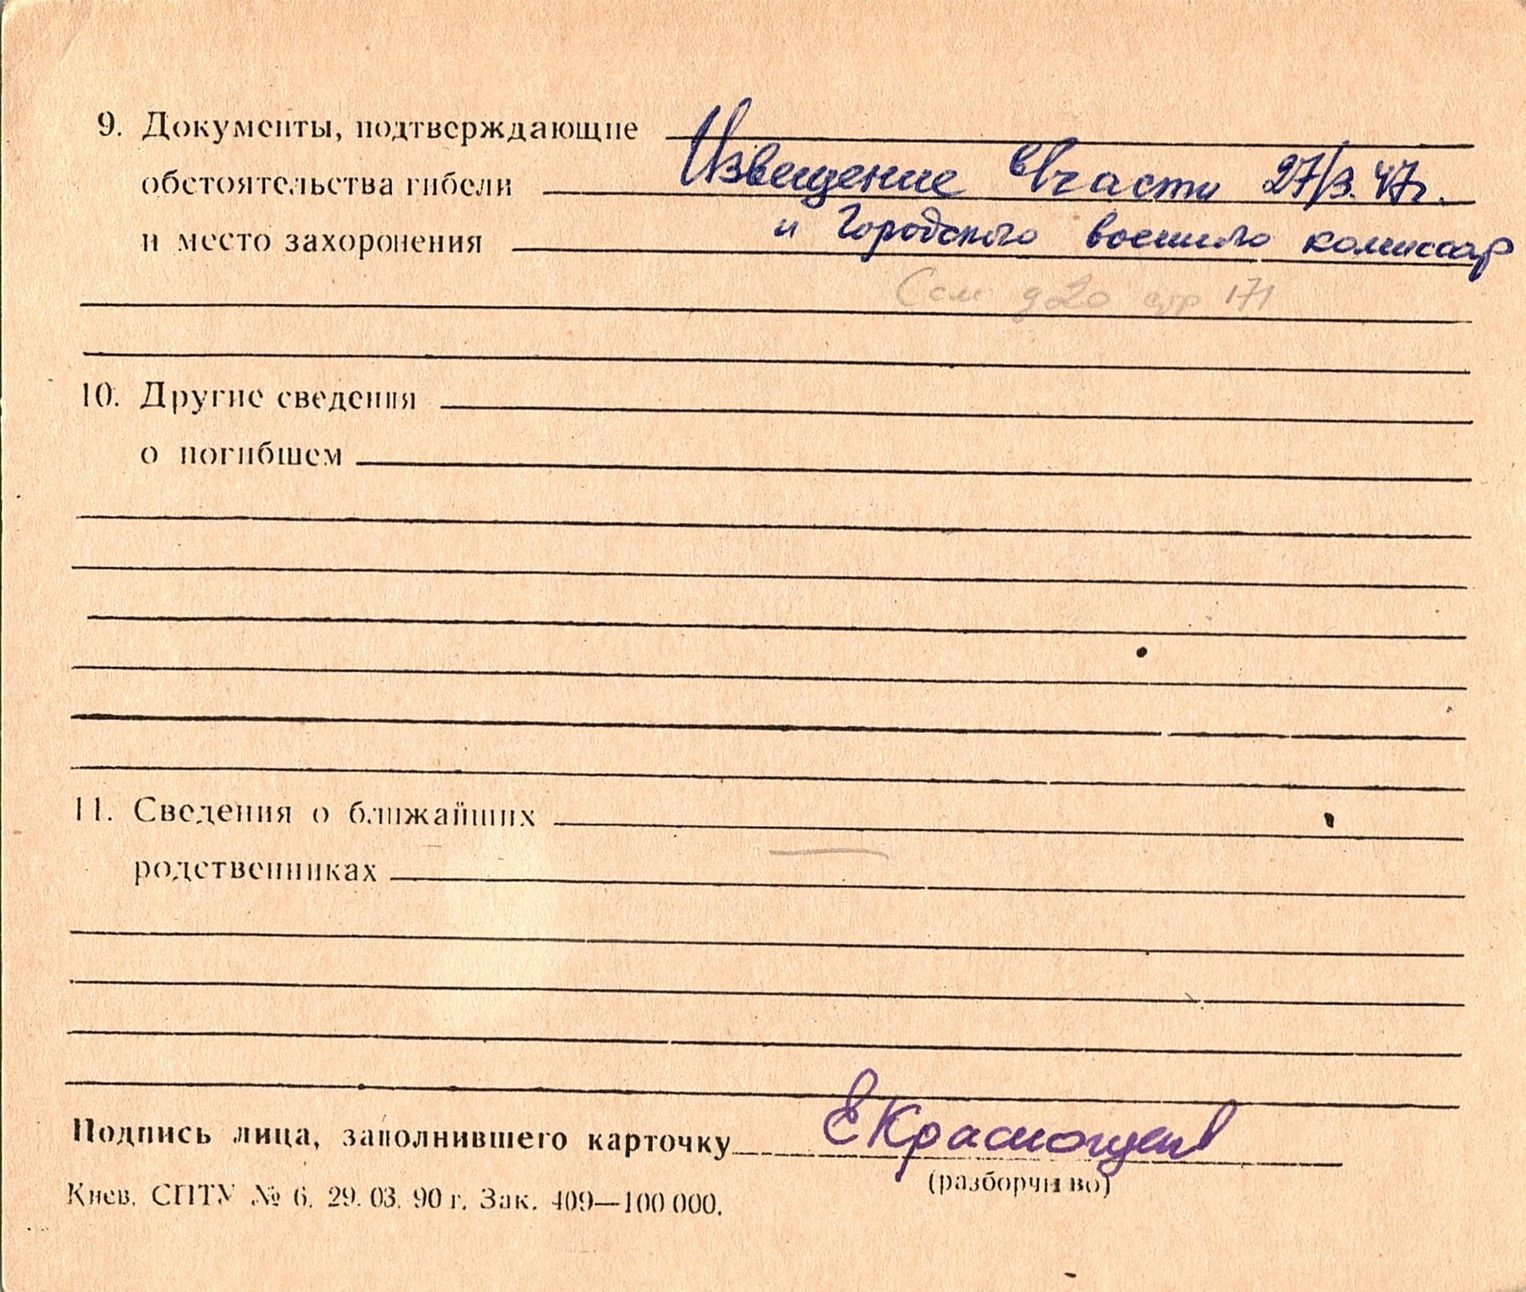 9. Документы, подтверждающие
Извещение в/части 27/3.47г.
обстоятельства гибели
и Городского военного комиссар
и место захоронения
(см д20 стр 171
10. Другие сведения
о погибшем
11. Сведения о ближайших
родственниках
Подпись лица, заполнившего карточку Е
(разборчиво)
Киев. СПТУ № 6. 29. 03. 90 г. Зак. 409—100 000.